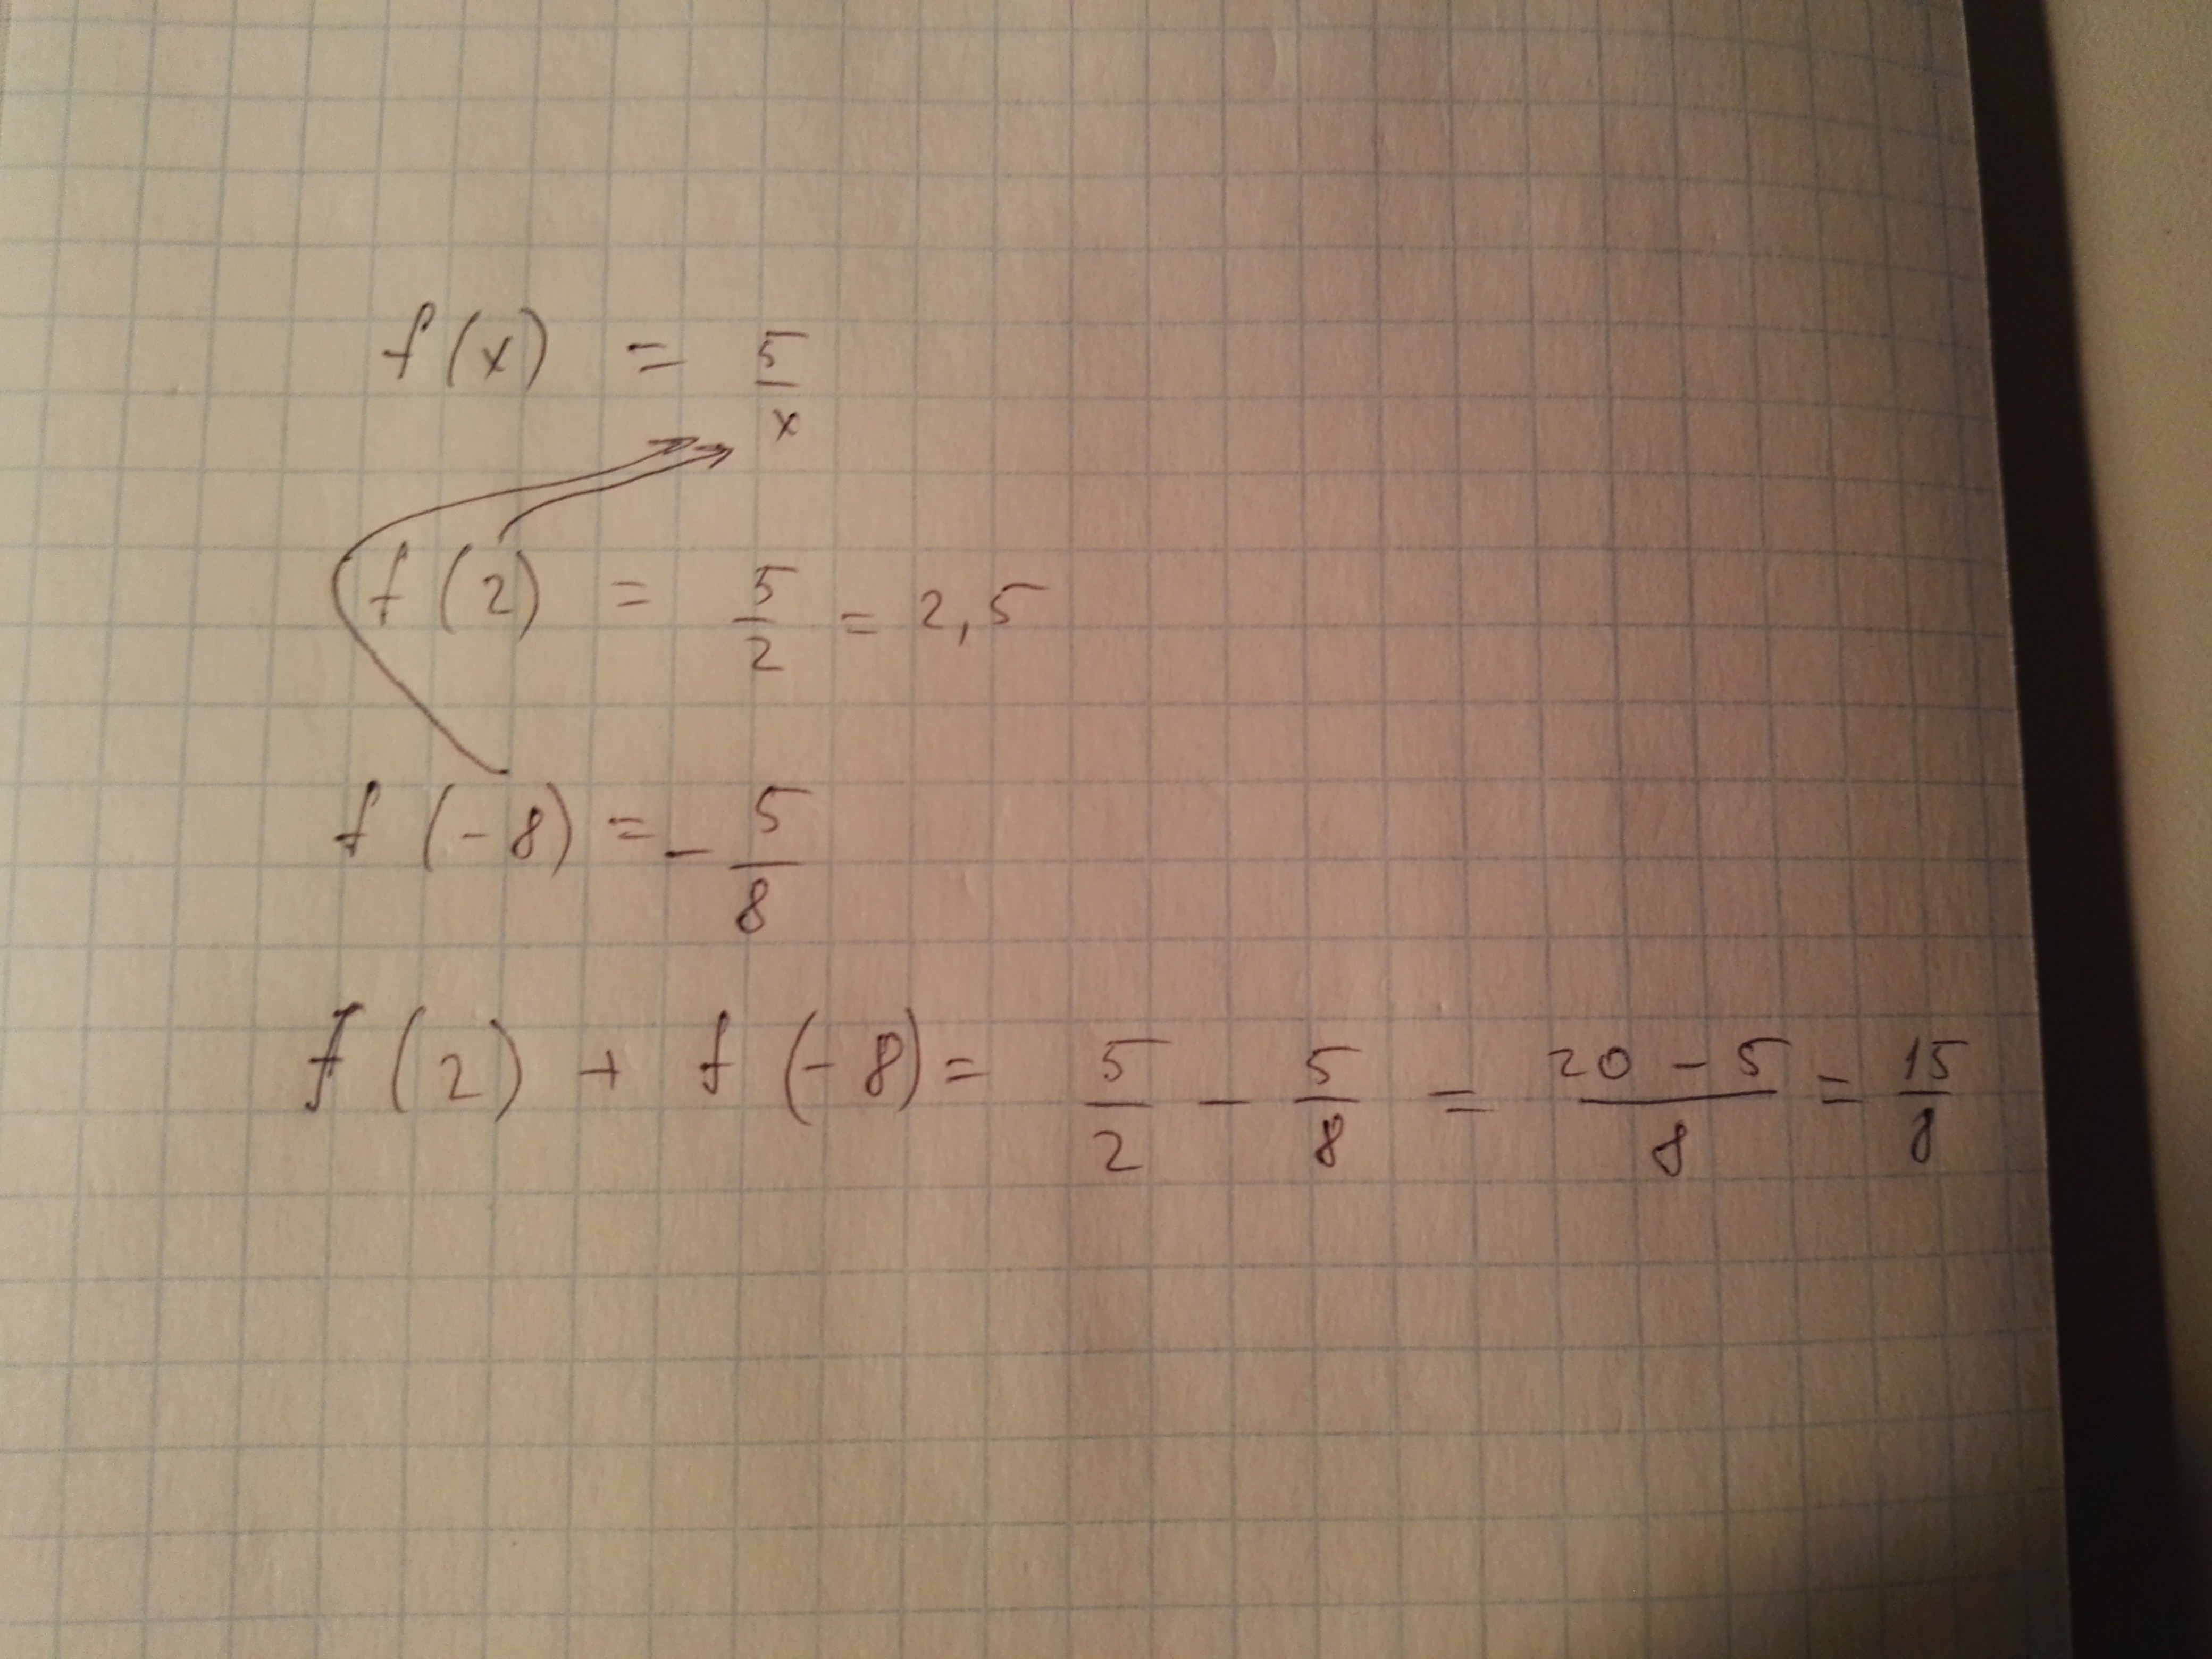 f(x) = 5/x
f(2) = 5/2 = 2,5
f(-8) = - 5/8
f(2) + f(-8) = 5/2 - 5/8 = (20 - 5)/8 = 15/8